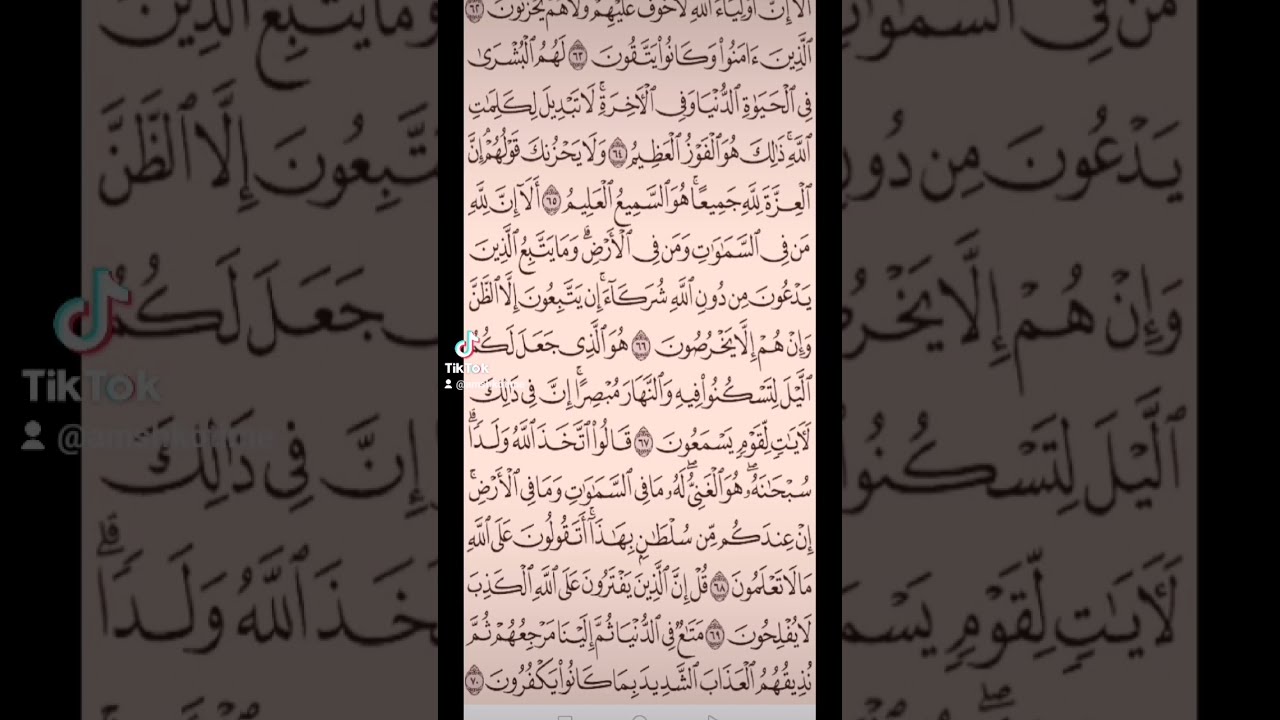 أَلَآ إِنَّ أَوْلِيَآءَ ٱللَّهِ لَا خَوْفٌ عَلَيْهِمْ وَلَا هُمْ يَحْزَنُونَ ٦٢
ٱلَّذِينَ ءَامَنُوا۟ وَكَانُوا۟ يَتَّقُونَ ٦٣ لَهُمُ ٱلْبُشْرَىٰ
فِى ٱلْحَيَوٰةِ ٱلدُّنْيَا وَفِى ٱلْـَٔاخِرَةِ ۚ لَا تَبْدِيلَ لِكَلِمَٰتِ
ٱللَّهِ ۚ ذَٰلِكَ هُوَ ٱلْفَوْزُ ٱلْعَظِيمُ ٦٤ وَلَا يَحْزُنكَ قَوْلُهُمْ ۘ إِنَّ
ٱلْعِزَّةَ لِلَّهِ جَمِيعًا ۚ هُوَ ٱلسَّمِيعُ ٱلْعَلِيمُ ٦٥ أَلَآ إِنَّ لِلَّهِ
مَن فِى ٱلسَّمَٰوَٰتِ وَمَن فِى ٱلْأَرْضِ ۗ وَمَا يَتَّبِعُ ٱلَّذِينَ
يَدْعُونَ مِن دُونِ ٱللَّهِ شُرَكَآءَ ۚ إِن يَتَّبِعُونَ إِلَّا ٱلظَّنَّ
وَإِنْ هُمْ إِلَّا يَخْرُصُونَ ٦٦ هُوَ ٱلَّذِى جَعَلَ لَكُمُ
ٱلَّيْلَ لِتَسْكُنُوا۟ فِيهِ وَٱلنَّهَارَ مُبْصِرًا ۚ إِنَّ فِى ذَٰلِكَ
لَـَٔايَٰتٍ لِّقَوْمٍ يَسْمَعُونَ ٦٧ قَالُوا۟ ٱتَّخَذَ ٱللَّهُ وَلَدًا ۗ
سُبْحَٰنَهُۥ ۖ هُوَ ٱلْغَنِىُّ ۖ لَهُۥ مَا فِى ٱلسَّمَٰوَٰتِ وَمَا فِى ٱلْأَرْضِ ۚ
إِنْ عِندَكُم مِّن سُلْطَٰنٍۭ بِهَٰذَآ ۚ أَتَقُولُونَ عَلَى ٱللَّهِ
مَا لَا تَعْلَمُونَ ٦٨ قُلْ إِنَّ ٱلَّذِينَ يَفْتَرُونَ عَلَى ٱللَّهِ ٱلْكَذِبَ
لَا يُفْلِحُونَ ٦٩ مَتَٰعٌ فِى ٱلدُّنْيَا ثُمَّ إِلَيْنَا مَرْجِعُهُمْ ثُمَّ
نُذِيقُهُمُ ٱلْعَذَابَ ٱلشَّدِيدَ بِمَا كَانُوا۟ يَكْفُرُونَ ٧٠
TikTok